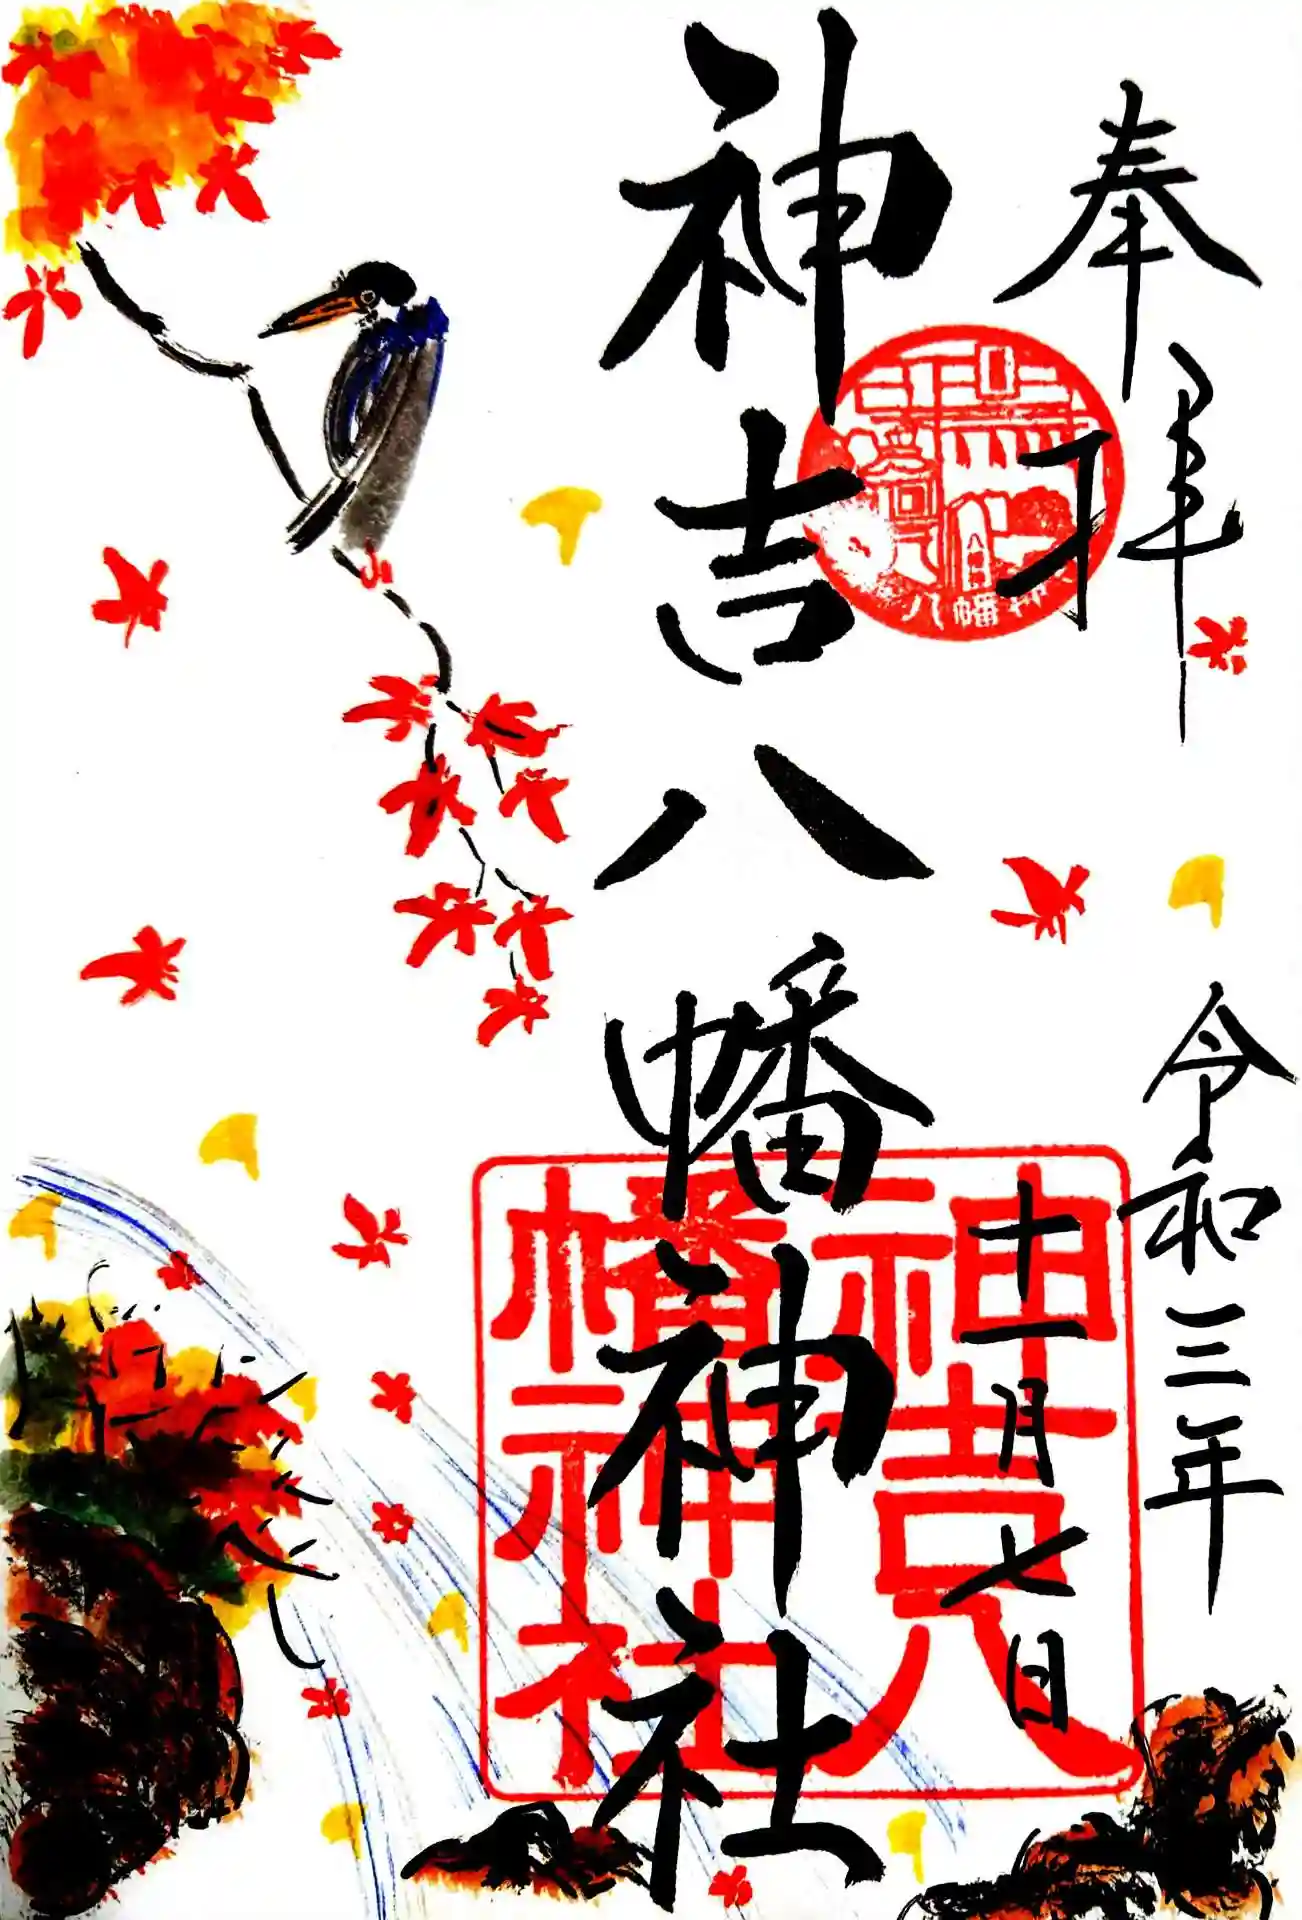 奉拝
令和三年
十一月七日
神吉八幡神社
八幡神
神吉八
幡神社